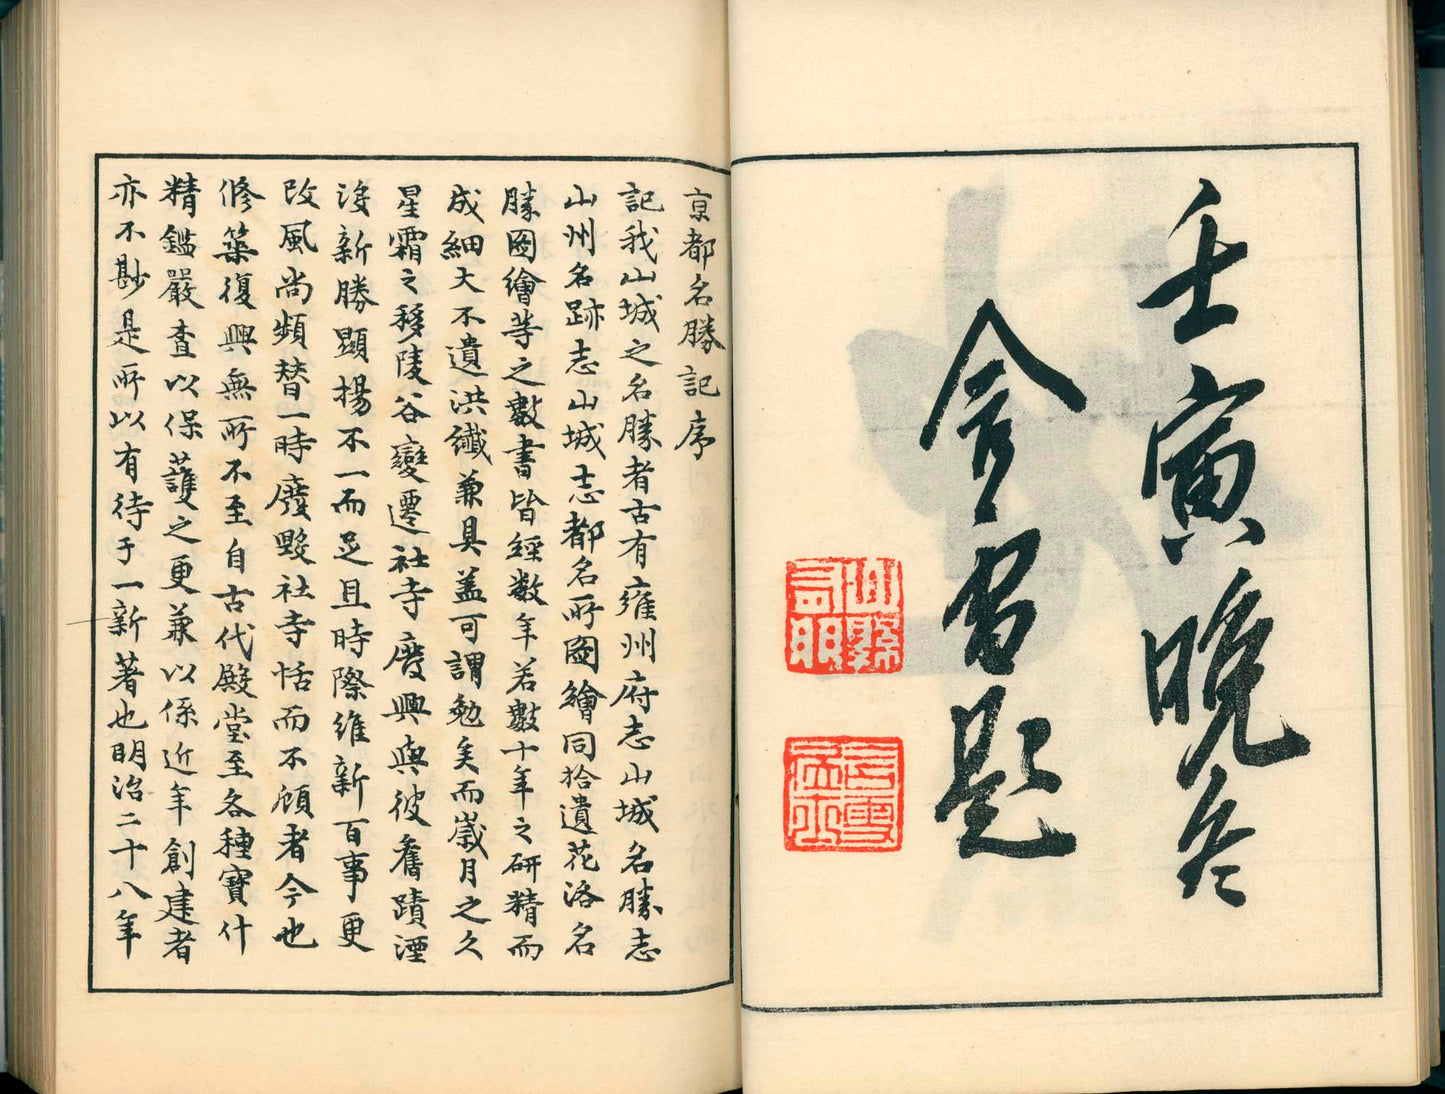 壬寅晚冬
含雪題
山縣有朋
京都名勝記序
記我山城之名勝者古有雍州府志山城名勝志
山州名跡志山城志都名所圖繪同拾遺花洛名
勝圖繪等之數書皆經数年若數十年之研精而
成細大不遺洪纖兼具盖可謂勉矣而歲月之久
星霜之移陵谷變遷社寺廢興與彼舊蹟湮
沒新勝顯揚不一而足且時際維新百事更
改風尚頻替一時廢毀社寺恬而不顧者今也
修築復興無所不至自古代殿堂至各種寶什
精鑑嚴査以保護之更兼以係近年創建者
亦不尠是所以有待于一新著也明治二十八年